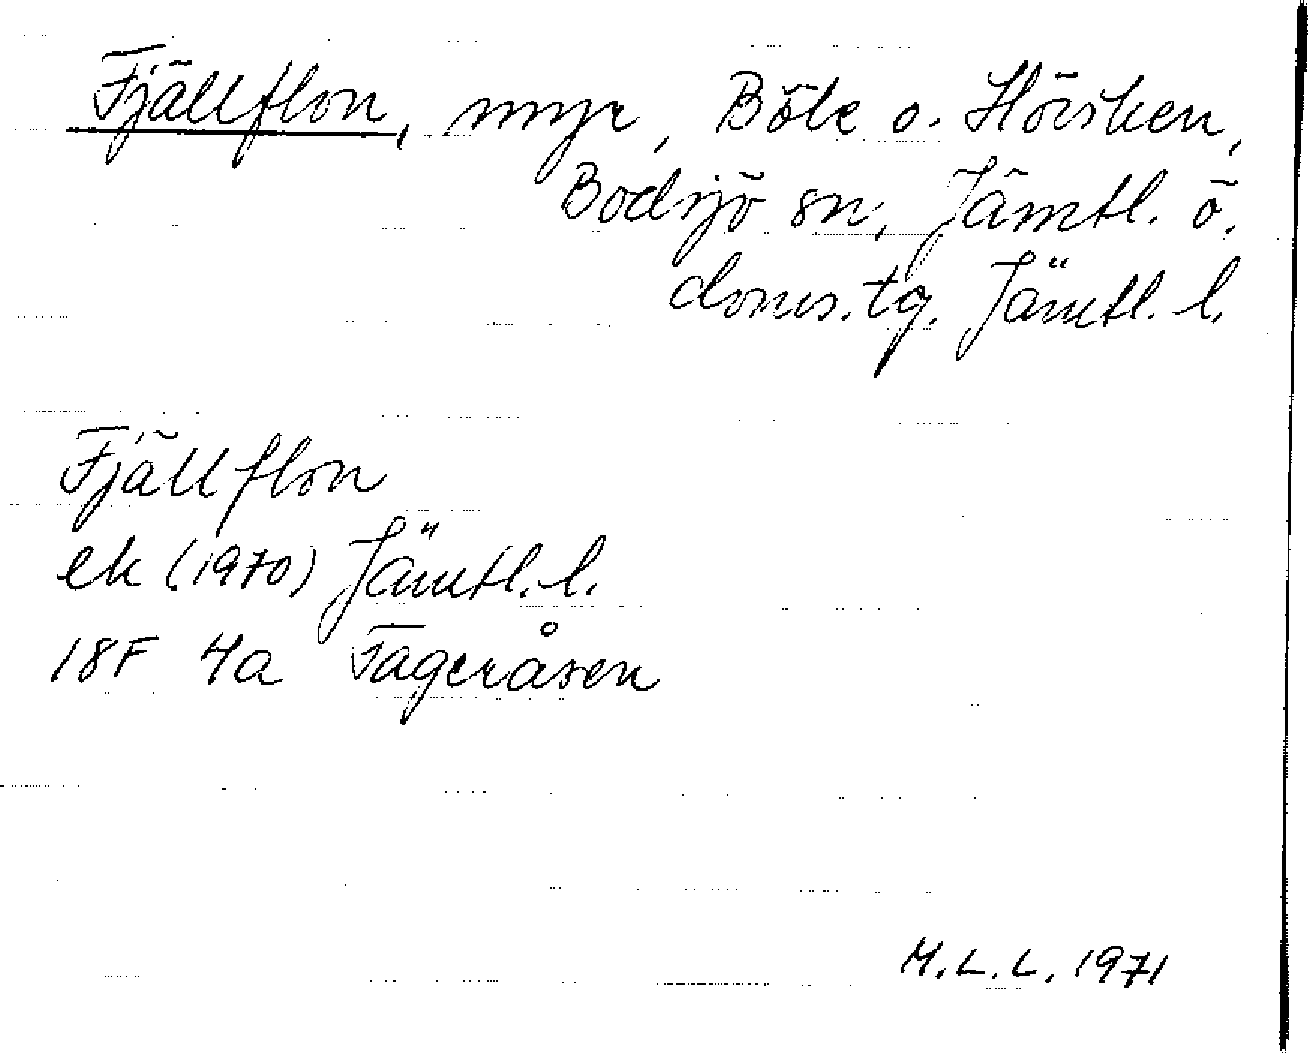 Fjällflon, myr, Böle o. Hörsken,
Bodsjö sn, Jämtl. ö.
doms.tg. Jämtl. l.
Fjällflon
ek (1970) Jämtl. l.
18F 4a Fageråsen
M.L.L. 1971